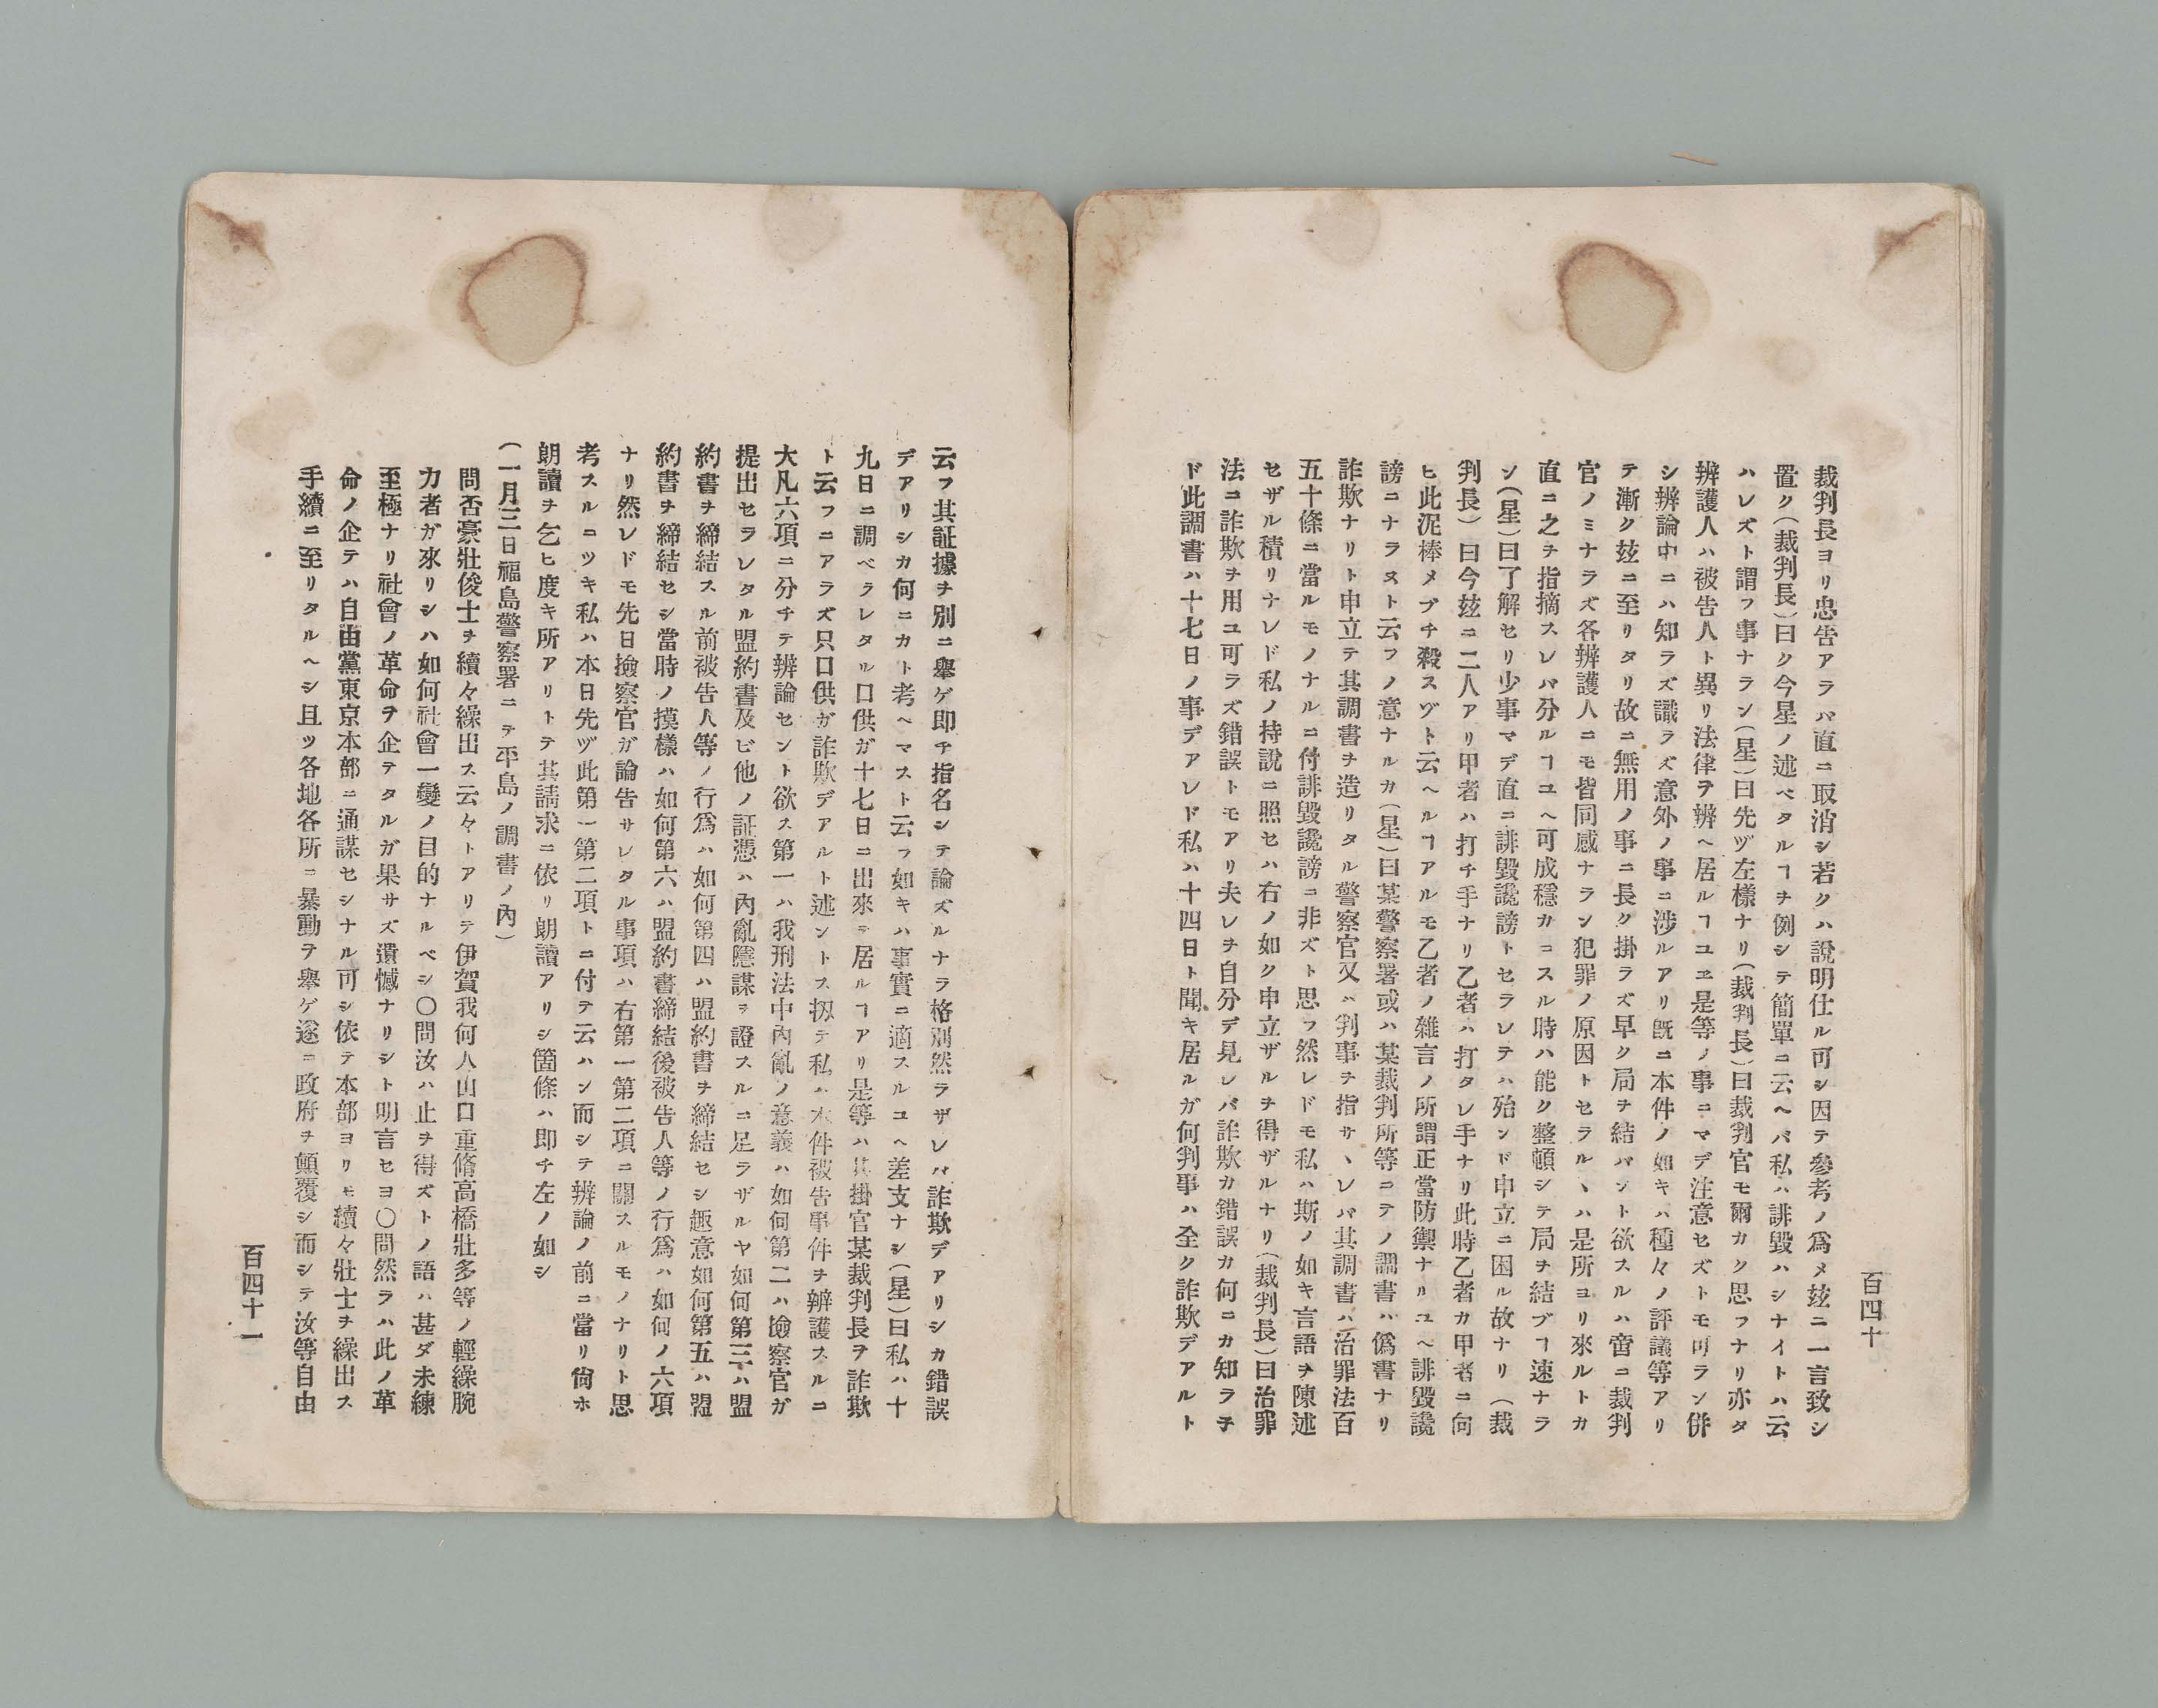 百四十
裁判長ヨリ忠告アラバ直ニ取消シ若クハ說明仕ル可シ因テ參考ノ爲メ玆ニ一言致シ
置ク(裁判長)曰ク今星ノ述ベタルヿヲ例シテ簡單ニ云ヘバ私ハ誹毀ハシナイトハ云
ハレズト謂フ事ナラン(星)曰先ヅ左樣ナリ(裁判長)曰裁判官モ爾カク思フナリ亦タ
辨護人ハ被告人ト異リ法律ヲ辨ヘ居ルヿユヱ是等ノ事ニマデ注意セズトモ可ラン併
シ辨論中ニハ知ラズ識ラズ意外ノ事ニ涉ルアリ既ニ本件ノ如キハ種々ノ評議等アリ
テ漸ク玆ニ至リタリ故ニ無用ノ事ニ長ク掛ラズ早ク局ヲ結バント欲スルハ啻ニ裁判
官ノミナラズ各辨護人ニモ皆同感ナラン犯罪ノ原因トセラルヽハ是所ヨリ來ルトカ
直ニ之ヲ指摘スレバ分ルヿユヘ可成穩カニスル時ハ能ク整頓シテ局ヲ結ブヿ速ナラ
ン(星)曰了解セリ少事マデ直ニ誹毀讒謗トセラレテハ殆ンド申立ニ困ル故ナリ(裁
判長)曰今玆ニ二人アリ甲者ハ打チ手ナリ乙者ハ打タレ手ナリ此時乙者カ甲者ニ向
ヒ此泥棒メブチ殺スゾト云ヘルヿアルモ乙者ノ雜言ノ所謂正當防禦ナリユヘ誹毀讒
謗ニナラヌト云フノ意ナルカ(星)曰某警察署或ハ某裁判所等ニテノ調書ハ僞書ナリ
詐欺ナリト申立テ其調書ヲ造リタル警察官又ハ判事ヲ指サヽレバ其調書ハ治罪法百
五十條ニ當ルモノナルニ付誹毀讒謗ニ非ズト思フ然レドモ私ハ斯ノ如キ言語ヲ陳述
セザル積リナレド私ノ持說ニ照セハ右ノ如ク申立ザルヲ得ザルナリ(裁判長)曰治罪
法ニ詐欺ヲ用ユ可ラズ錯誤トモアリ夫レヲ自分デ見レバ詐欺カ錯誤カ何ニカ知ラヲ
ド此調書ハ十七日ノ事デアレド私ハ十四日ト聞キ居ルガ何判事ハ全ク詐欺デアルト
云フ其証據ヲ別ニ擧ゲ即チ指名シテ論ズルナラ格別然ラザレバ詐欺デアリシカ錯誤
デアリシカ何ニカト考ヘマスト云フ如キハ事實ニ適スルユヘ差支ナシ(星)曰私ハ十
九日ニ調ベラレタル口供ガ十七日ニ出來テ居ルヿアリ是等ハ其掛官某裁判長ヲ詐欺
ト云フニアラズ只口供ガ詐欺デアルト述ントス扨テ私ハ本件被告事件ヲ辨護スルニ
大凡六項ニ分チテ辨論セント欲ス第一ハ我刑法中內亂ノ意義ハ如何第二ハ撿察官ガ
提出セラレタル盟約書及ビ他ノ証憑ハ內亂隱謀ヲ證スルニ足ラザルヤ如何第三ハ盟
約書ヲ締結スル前被告人等ノ行爲ハ如何第四ハ盟約書ヲ締結セシ趣意如何第五ハ盟
約書ヲ締結セシ當時ノ摸樣ハ如何第六ハ盟約書締結後被告人等ノ行爲ハ如何ノ六項
ナリ然レドモ先日撿察官ガ論告サレタル事項ハ右第一第二項ニ關スルモノナリト思
考スルニツキ私ハ本日先ヅ此第一第二項トニ付テ云ハン而シテ辨論ノ前ニ當リ尙ホ
朗讀ヲ乞ヒ度キ所アリトテ其請求ニ依リ朗讀アリシ箇條ハ即チ左ノ如シ
(一月三日福島警察署ニテ平島ノ調書ノ內)
問否豪壯俊士ヲ續々繰出ス云々トアリテ伊賀我何人山口重脩高橋壯多等ノ輕繰腕
力者ガ來リシハ如何社會一變ノ目的ナルベシ〇問汝ハ止ヲ得ズトノ語ハ甚ダ未練
至極ナリ社會ノ革命ヲ企テタルガ果サズ遺憾ナリシト明言セヨ〇問然ラハ此ノ革
命ノ企テハ自由黨東京本部ニ通謀セシナル可シ依テ本部ヨリモ續々壯士ヲ繰出ス
手續ニ至リタルヘシ且ツ各地各所ニ暴動ヲ擧ゲ遂ニ政府ヲ顚覆シ而シテ汝等自由
百四十一